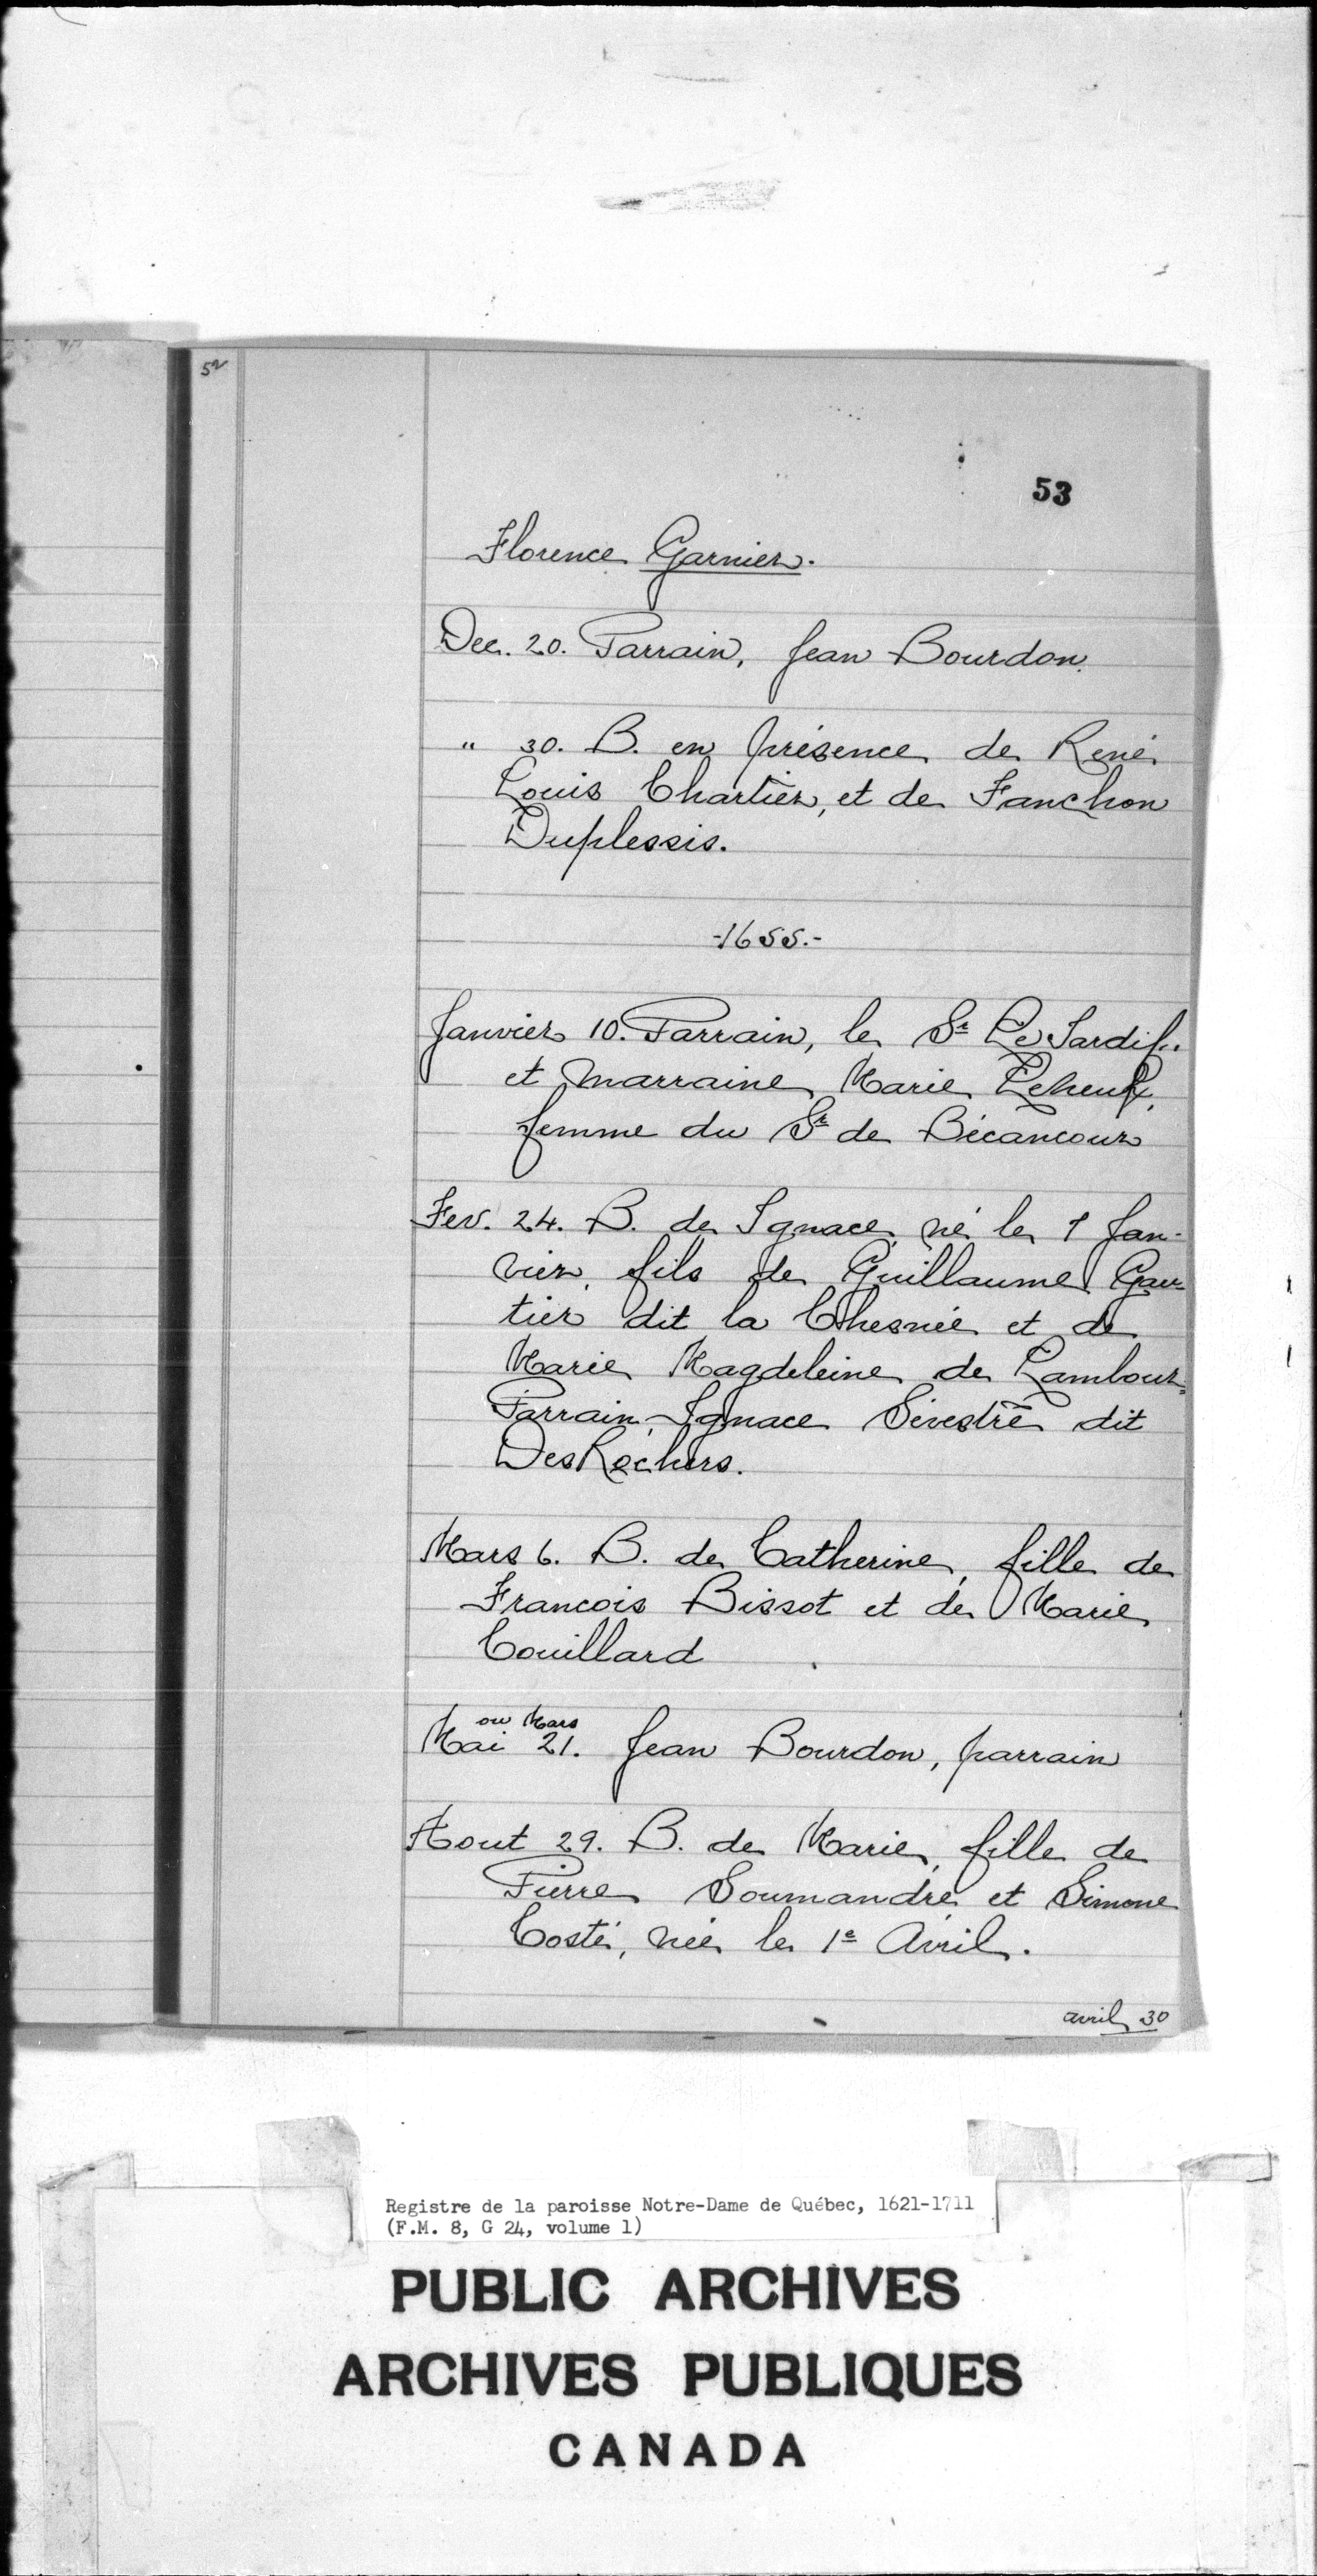 52
53
Florence Garnier.
Dec. 20. Parrain, Jean Bourdon.
" 30. B. en présence de René
Louis Chartier, et de Fanchon
Duplessis.
-1655.-
Janvier 10. Parrain, le Sr Le Tardif..
et marraine Marie Leneuf,
femme du Sr de Bécancour
Fev. 24. B. de Ignace, né le 1 Jan-
vier, fils de Guillaume Gau-
tier dit la Chesnée et de
Marie Magdeleine de Lambour=
Parrain Ignace Sévestre dit
DesRochers.
Mars 6. B. de Catherine, fille de
Francois Bissot et de Marie
Couillard
ou Mars
Mai 21. Jean Bourdon, parrain
Aout 29. B. de Marie, fille de
Pierre Soumandre et Simone
Costé, née le 1e Avril.
avril 30
Registre de la paroisse Notre-Dame de Québec, 1621-1711
(F.M. 8, G 24, volume 1)
PUBLIC ARCHIVES
ARCHIVES PUBLIQUES
CANADA